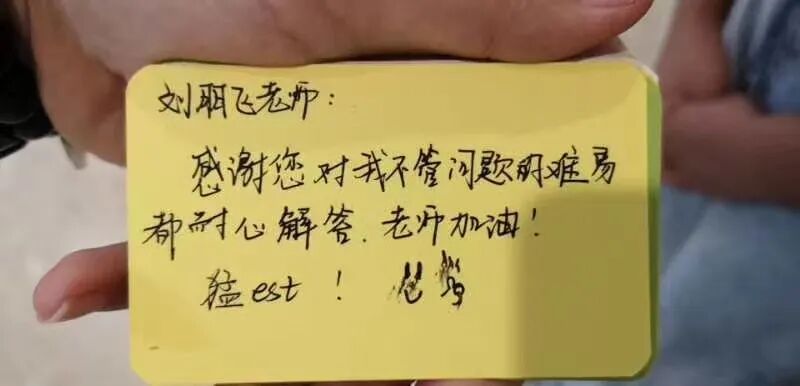 刘羽飞老师：
感谢您对我不管问题的难易
都耐心解答.老师加油！
猛est！